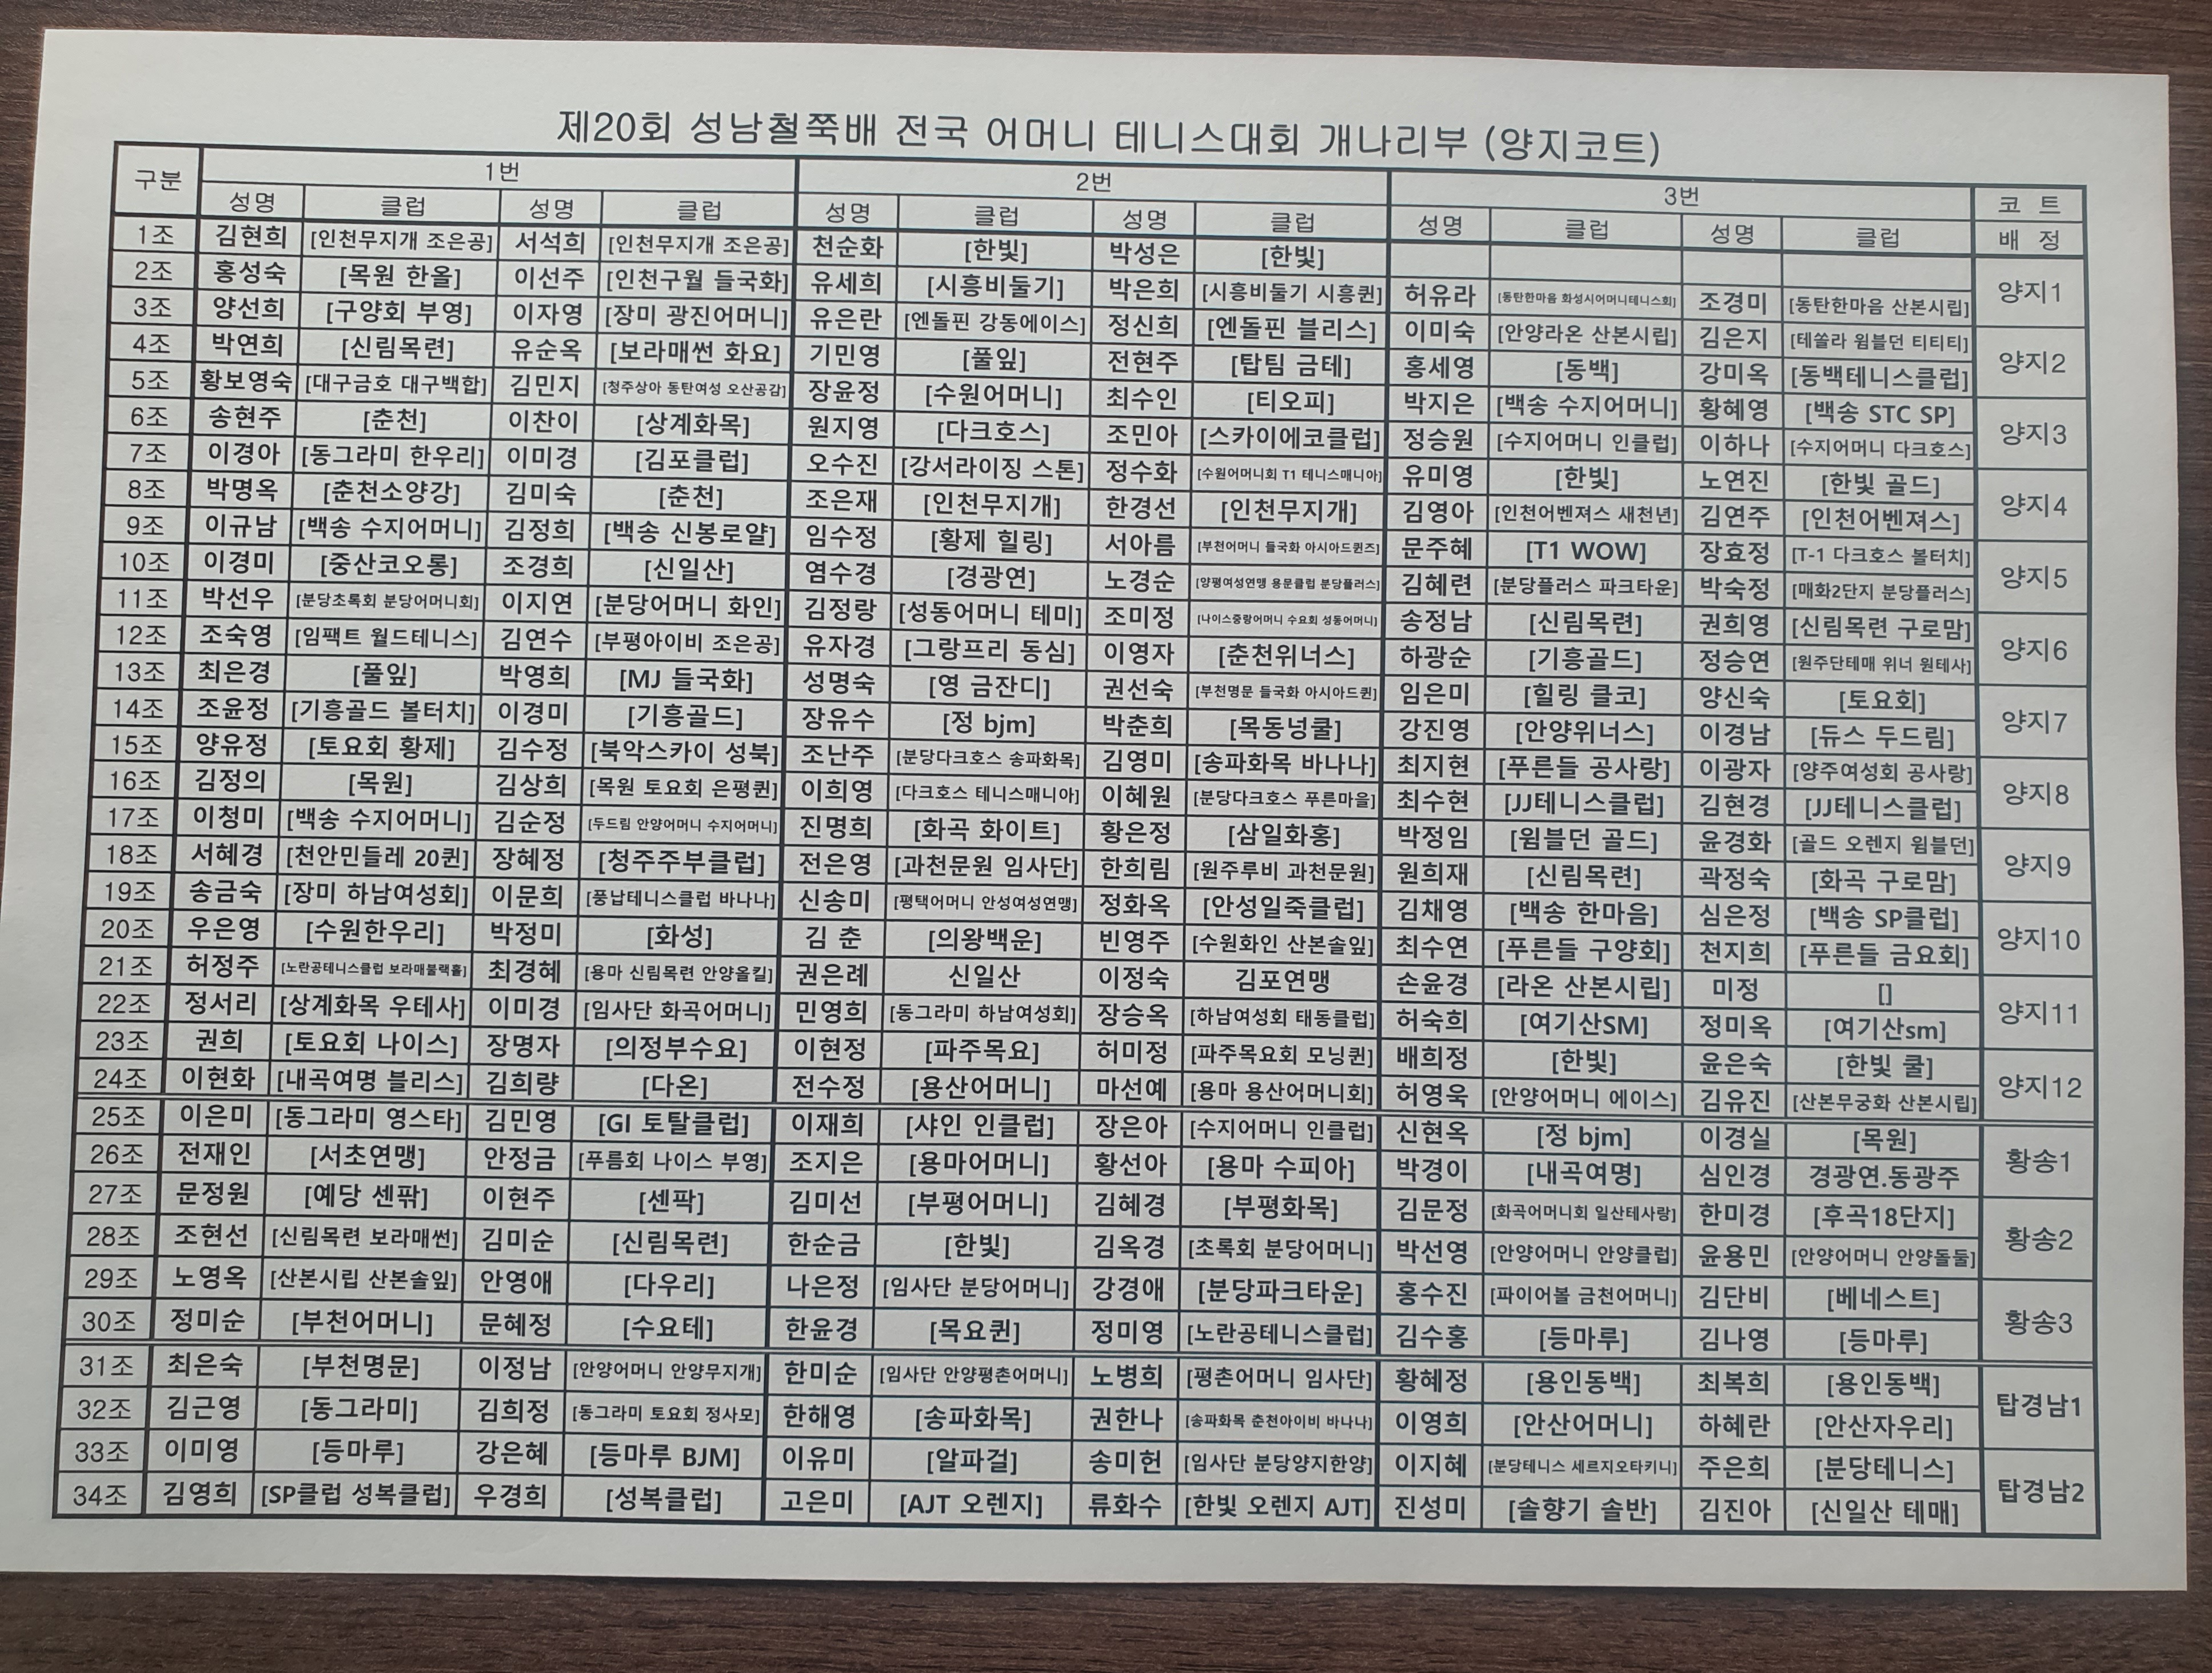 제20회 성남철쭉배 전국 어머니 테니스대회 개나리부 (양지코트)
구분 1번 2번 3번 코 트
성명 클럽 성명 클럽 성명 클럽 성명 클럽 성명 클럽 성명 클럽 배 정
1조 김현희 [인천무지개 조은공] 서석희 [인천무지개 조은공] 천순화 [한빛] 박성은 [한빛] 양지1
2조 홍성숙 [목원 한올] 이선주 [인천구월 들국화] 유세희 [시흥비둘기] 박은희 [시흥비둘기 시흥퀸] 허유라 [동탄한마음 화성시어머니테니스회] 조경미 [동탄한마음 산본시립]
3조 양선희 [구양회 부영] 이자영 [장미 광진어머니] 유은란 [엔돌핀 강동에이스] 정신희 [엔돌핀 블리스] 이미숙 [안양라온 산본시립] 김은지 [테쏠라 윔블던 티티티] 양지2
4조 박연희 [신림목련] 유순옥 [보라매썬 화요] 기민영 [풀잎] 전현주 [탑팀 금테] 홍세영 [동백] 강미옥 [동백테니스클럽]
5조 황보영숙 [대구금호 대구백합] 김민지 [청주상아 동탄여성 오산공감] 장윤정 [수원어머니] 최수인 [티오피] 박지은 [백송 수지어머니] 황혜영 [백송 STC SP] 양지3
6조 송현주 [춘천] 이찬이 [상계화목] 원지영 [다크호스] 조민아 [스카이에코클럽] 정승원 [수지어머니 인클럽] 이하나 [수지어머니 다크호스]
7조 이경아 [동그라미 한우리] 이미경 [김포클럽] 오수진 [강서라이징 스톤] 정수화 [수원어머니회 T1 테니스매니아] 유미영 [한빛] 노연진 [한빛 골드] 양지4
8조 박명옥 [춘천소양강] 김미숙 [춘천] 조은재 [인천무지개] 한경선 [인천무지개] 김영아 [인천어벤져스 새천년] 김연주 [인천어벤져스]
9조 이규남 [백송 수지어머니] 김정희 [백송 신봉로얄] 임수정 [황제 힐링] 서아름 [부천어머니 들국화 아시아드퀸즈] 문주혜 [T1 WOW] 장효정 [T-1 다크호스 볼터치] 양지5
10조 이경미 [중산코오롱] 조경희 [신일산] 염수경 [경광연] 노경순 [양평여성연맹 용문클럽 분당플러스] 김혜련 [분당플러스 파크타운] 박숙정 [매화2단지 분당플러스]
11조 박선우 [분당초록회 분당어머니회] 이지연 [분당어머니 화인] 김정랑 [성동어머니 테미] 조미정 [나이스중랑어머니 수요회 성동어머니] 송정남 [신림목련] 권희영 [신림목련 구로맘] 양지6
12조 조숙영 [임팩트 월드테니스] 김연수 [부평아이비 조은공] 유자경 [그랑프리 동심] 이영자 [춘천위너스] 하광순 [기흥골드] 정승연 [원주단테매 위너 원테사]
13조 최은경 [풀잎] 박영희 [MJ 들국화] 성명숙 [영 금잔디] 권선숙 [부천명문 들국화 아시아드퀸] 임은미 [힐링 클코] 양신숙 [토요회] 양지7
14조 조윤정 [기흥골드 볼터치] 이경미 [기흥골드] 장유수 [정 bjm] 박춘희 [목동넝쿨] 강진영 [안양위너스] 이경남 [듀스 두드림]
15조 양유정 [토요회 황제] 김수정 [북악스카이 성북] 조난주 [분당다크호스 송파화목] 김영미 [송파화목 바나나] 최지현 [푸른들 공사랑] 이광자 [양주여성회 공사랑] 양지8
16조 김정의 [목원] 김상희 [목원 토요회 은평퀸] 이희영 [다크호스 테니스매니아] 이혜원 [분당다크호스 푸른마을] 최수현 [JJ테니스클럽] 김현경 [JJ테니스클럽]
17조 이청미 [백송 수지어머니] 김순정 [두드림 안양어머니 수지어머니] 진명희 [화곡 화이트] 황은정 [삼일화홍] 박정임 [윔블던 골드] 윤경화 [골드 오렌지 윔블던] 양지9
18조 서혜경 [천안민들레 20퀸] 장혜정 [청주주부클럽] 전은영 [과천문원 임사단] 한희림 [원주루비 과천문원] 원희재 [신림목련] 곽정숙 [화곡 구로맘]
19조 송금숙 [장미 하남여성회] 이문희 [풍납테니스클럽 바나나] 신송미 [평택어머니 안성여성연맹] 정화옥 [안성일죽클럽] 김채영 [백송 한마음] 심은정 [백송 SP클럽] 양지10
20조 우은영 [수원한우리] 박정미 [화성] 김 춘 [의왕백운] 빈영주 [수원화인 산본솔잎] 최수연 [푸른들 구양회] 천지희 [푸른들 금요회]
21조 허정주 [노란공테니스클럽 보라매블랙홀] 최경혜 [용마 신림목련 안양올킬] 권은례 신일산 이정숙 김포연맹 손윤경 [라온 산본시립] 미정 [] 양지11
22조 정서리 [상계화목 우테사] 이미경 [임사단 화곡어머니] 민영희 [동그라미 하남여성회] 장승옥 [하남여성회 태동클럽] 허숙희 [여기산SM] 정미옥 [여기산sm]
23조 권희 [토요회 나이스] 장명자 [의정부수요] 이현정 [파주목요] 허미정 [파주목요회 모닝퀸] 배희정 [한빛] 윤은숙 [한빛 쿨] 양지12
24조 이현화 [내곡여명 블리스] 김희량 [다온] 전수정 [용산어머니] 마선예 [용마 용산어머니회] 허영욱 [안양어머니 에이스] 김유진 [산본무궁화 산본시립]
25조 이은미 [동그라미 영스타] 김민영 [GI 토탈클럽] 이재희 [샤인 인클럽] 장은아 [수지어머니 인클럽] 신현옥 [정 bjm] 이경실 [목원] 황송1
26조 전재인 [서초연맹] 안정금 [푸름회 나이스 부영] 조지은 [용마어머니] 황선아 [용마 수피아] 박경이 [내곡여명] 심인경 경광연.동광주
27조 문정원 [예당 센팎] 이현주 [센팍] 김미선 [부평어머니] 김혜경 [부평화목] 김문정 [화곡어머니회 일산테사랑] 한미경 [후곡18단지] 황송2
28조 조현선 [신림목련 보라매썬] 김미순 [신림목련] 한순금 [한빛] 김옥경 [초록회 분당어머니] 박선영 [안양어머니 안양클럽] 윤용민 [안양어머니 안양돌돌]
29조 노영옥 [산본시립 산본솔잎] 안영애 [다우리] 나은정 [임사단 분당어머니] 강경애 [분당파크타운] 홍수진 [파이어볼 금천어머니] 김단비 [베네스트] 황송3
30조 정미순 [부천어머니] 문혜정 [수요테] 한윤경 [목요퀸] 정미영 [노란공테니스클럽] 김수홍 [등마루] 김나영 [등마루]
31조 최은숙 [부천명문] 이정남 [안양어머니 안양무지개] 한미순 [임사단 안양평촌어머니] 노병희 [평촌어머니 임사단] 황혜정 [용인동백] 최복희 [용인동백] 탑경남1
32조 김근영 [동그라미] 김희정 [동그라미 토요회 정사모] 한해영 [송파화목] 권한나 [송파화목 춘천아이비 바나나] 이영희 [안산어머니] 하혜란 [안산자우리]
33조 이미영 [등마루] 강은혜 [등마루 BJM] 이유미 [알파걸] 송미헌 [임사단 분당양지한양] 이지혜 [분당테니스 세르지오타키니] 주은희 [분당테니스] 탑경남2
34조 김영희 [SP클럽 성복클럽] 우경희 [성복클럽] 고은미 [AJT 오렌지] 류화수 [한빛 오렌지 AJT] 진성미 [솔향기 솔반] 김진아 [신일산 테매]